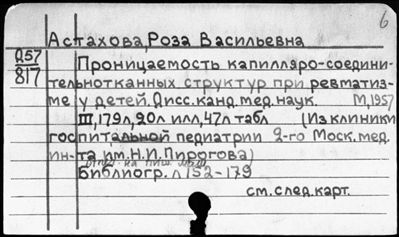 6
Астахова, Роза Васильевна
Д57
817
Проницаемость капилляро-соедини-
тельнотканных структур при ревматиз-
ме у детей. Дисс. канд. мед. наук. М, 1957
III, 179л, 90л илл, 47л табл (Из клиники
госпитальной педиатрии 2-го Моск. мед.
ин-та им. Н.И. Пирогова)
Отпеч. на пиш. маш.
Библиогр. л 152-179
см. след. карт.